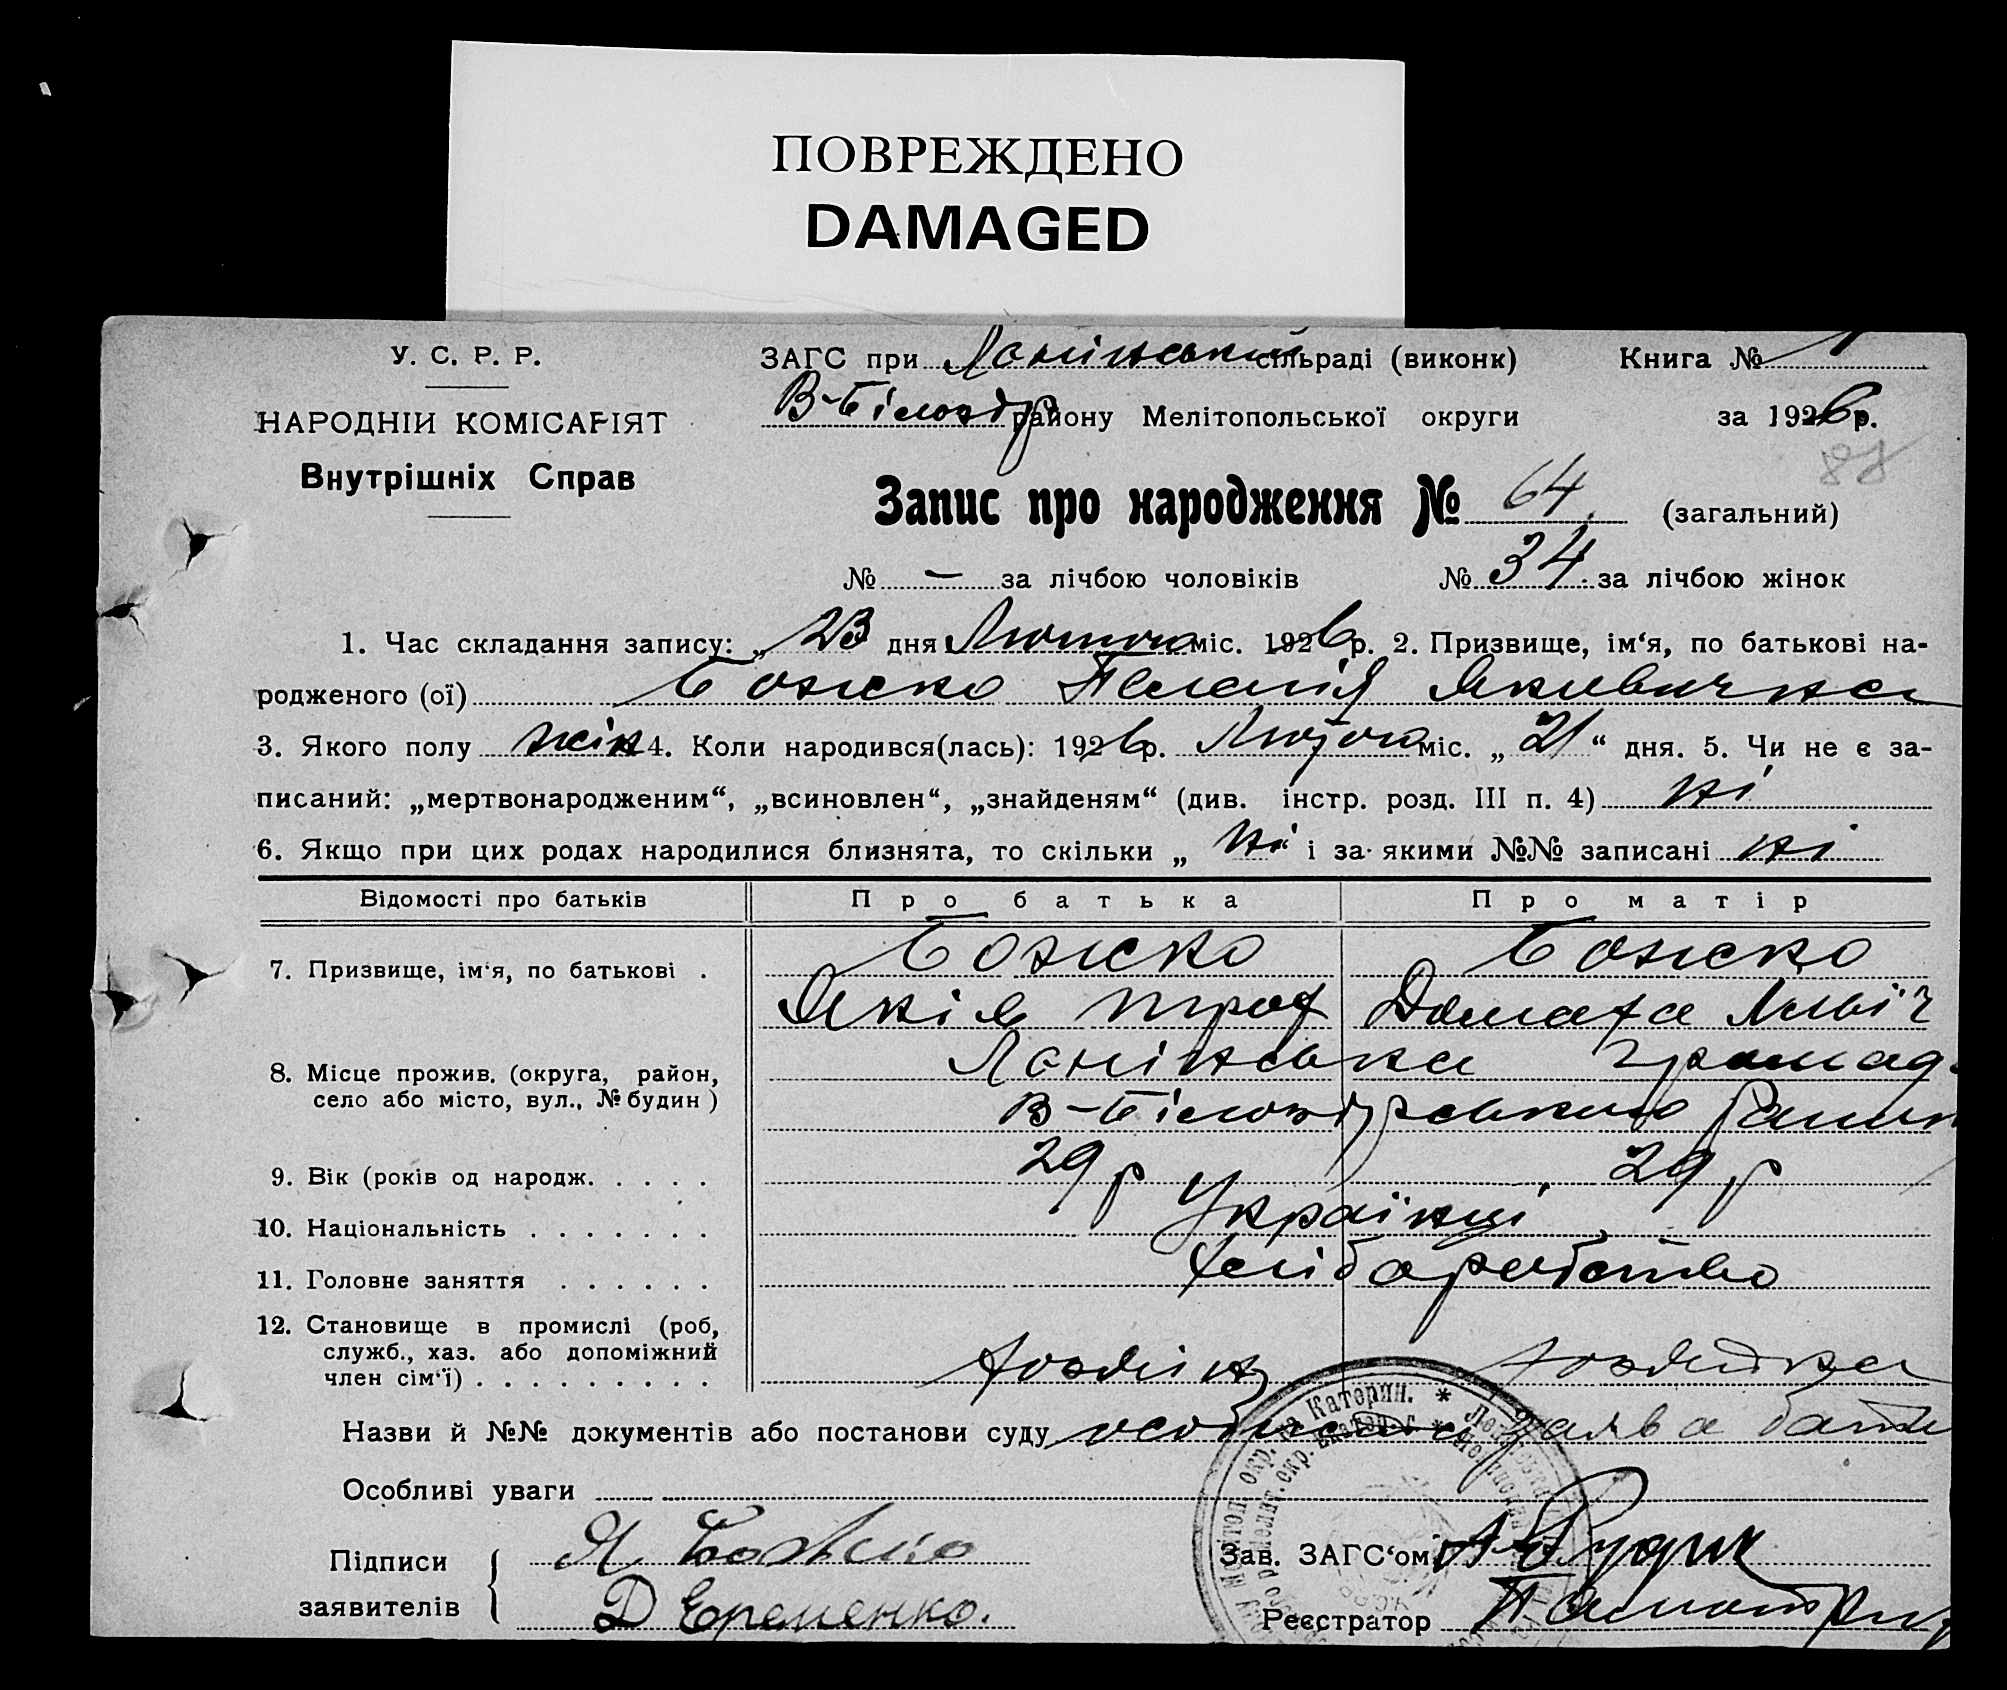 ПОВРЕЖДЕНО
DAMAGED
У. С. Р. Р.
НАРОДНІЙ КОМІСАРІЯТ
Внутрішніх Справ
ЗАГС при сільраді (виконк) Книга № 1
В-Білозір району Мелітопольської округи за 1926 р.
88
Запис про народження № 64 (загальний)
№ — за лічбою чоловіків № 34 за лічбою жінок
1. Час складання запису: „ 23 дня Лютого міс. 1926 р. 2. Призвище, ім‘я, по батькові на-
родженого (ої) Божко Пелагія Якивична
3. Якого полу жін 4. Коли народився(лась): 1926 р. Лютого міс. „ 21 “ дня. 5. Чи не є за-
писаний: „мертвонародженим“, „всиновлен“, „знайденям“ (див. інстр. розд. III п. 4) ні
6. Якщо при цих родах народилися близнята, то скільки „ ні “ і за якими №№ записані ні
Відомості про батьків Про батька Про матір
7. Призвище, ім‘я, по батькові . Божко Божко
Яків Троф
8. Місце прожив. (округа, район, громад.
село або місто, вул., № будин) В-Білозірського
9. Вік (років од народж. . . . . 29 р 29 р
10. Національність . . . . . . . Українці
11. Головне заняття . . . . . . хліборобство
12. Становище в промислі (роб,
служб., хаз. або допоміжний
член сім‘ї) . . . . . . . . . хозяін хозяйка
Назви й №№ документів або постанови суду особиста заява
Особливі уваги
Підписи Я Божко Зав. ЗАГС‘ом
заявителів Д Еременко. Реєстратор